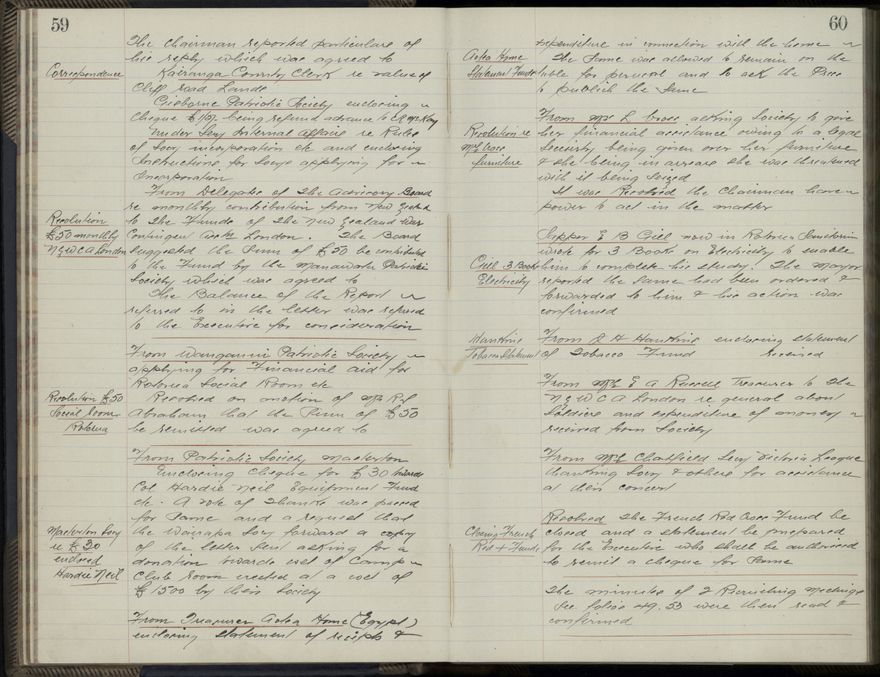 59
The Chairman reported particulars of
his reply which was agreed to
Correspondence
Kairanga County Clerk re value of
Cliff road Lands
Gisborne Patriotic Society enclosing
cheque being refund advance to
Under Secy Internal Affairs re Rules
of Socy incorporation etc and enclosing
Instructions for Socys applying for
Incorporation
From Delegate of the Advisory Board
re monthly contribution from New Zealand
Resolution
£50 monthly
N.Z.W.C.A London
to the Funds of the New Zealand War
Contingent Assn London. The Board
suggested the sum of £50 be contributed
to the Fund by the Manawatu Patriotic
Society which was agreed to
The Balance of the Report
referred to in the letter was refused
to the Executive for consideration
From Wanganui Patriotic Society
applying for Financial aid for
Rotorua Social Room etc
Resolution £50
Social Room
Rotorua
Resolved on motion of Mr
Abraham that the sum of £50
be remitted was agreed to
From Patriotic Society Masterton
Enclosing Cheque for £30 towards
Col Hardie Neil Equipment Fund
etc. A vote of thanks was passed
for same and a request that
Masterton Socy
re £30
enclosed
Hardie Neil
the Wairapa Socy forward a copy
of the letter sent asking for a
donation towards cost of Camp
Club Room erected at a cost of
£1500 by their Society
From Treasurer Aotea Home (Egypt)
enclosing statement of receipts &
60
expenditure in connection with the home
Aotea Home
Statement Funds
The same was allowed to remain on the
table for perusal and to ask the Press
to publish the same
From Mrs L Cross asking Society to give
Resolution re
Mrs Cross
furniture
her financial assistance owing to a legal
Security being given over her furniture
& she being in arrears she was threatened
with it being seized
It was Resolved the Chairman have
power to act in the matter
Sapper E B Cull now in Rotorua Sanitorium
wrote for 3 Books on Electricity to enable
Cull 3 Books
Electricity
him to complete his study. The Mayor
reported the same had been ordered &
forwarded to him & his action was
confirmed
Hankins
Tobacco Statement
From A H Hankins enclosing statement
of Tobacco Fund received
From Mrs E A Russell Treasurer to the
N.Z.W.C.A London re general about
Soldiers and expenditure of money
received from Society
From Mrs Chatfield Secy Victoria League
thanking Socy & others for assistance
at their concert
Closing French
Red + Funds
Resolved the French Red Cross Fund be
closed and a statement be prepared
for the Executive who shall be authorised
to remit a cheque for same
The minutes of 2 Recruiting Meetings
See folios 49, 53 were then read &
confirmed